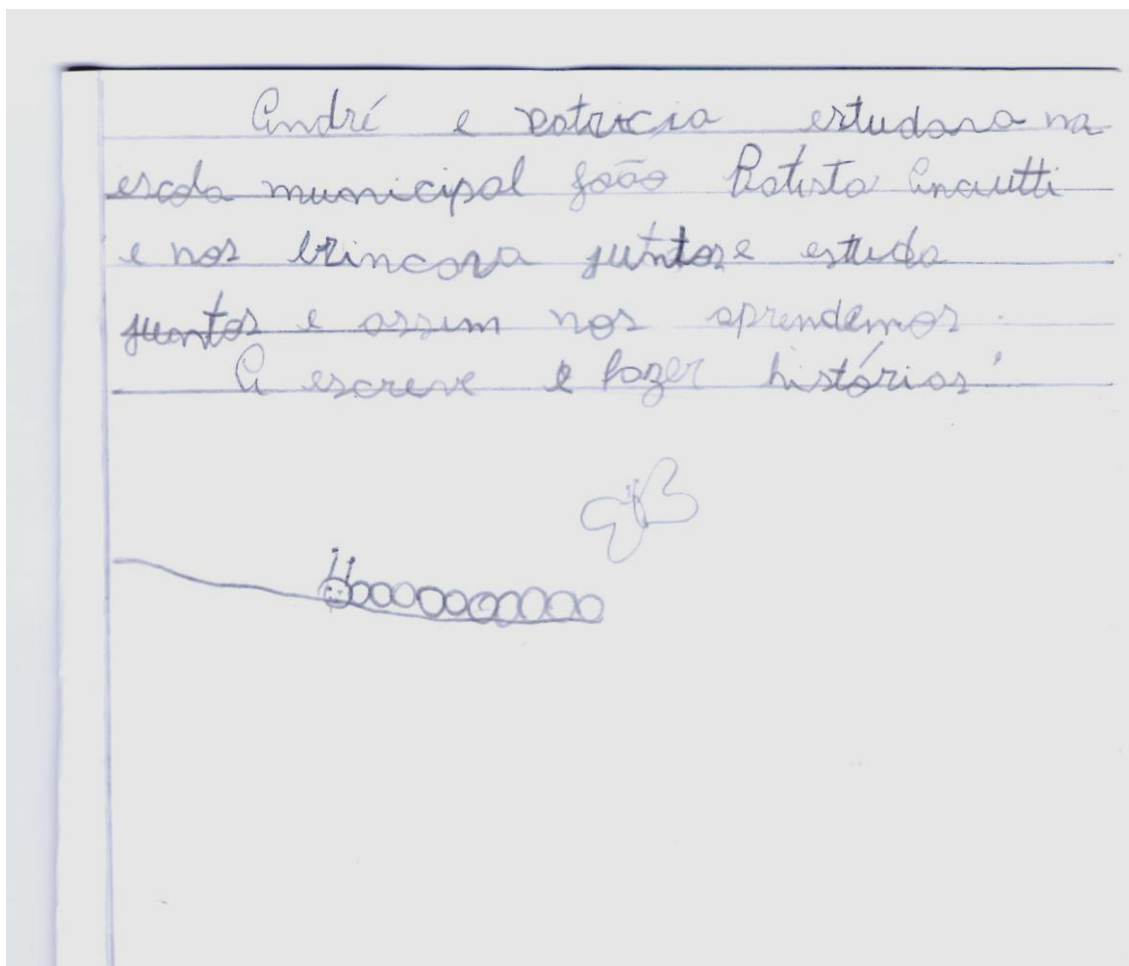 André e patricia estudava na
escola municipal João Batista
e nos brincava juntos e estuda
juntos e assim nos aprendemos.
A escreve e fazer histórias!